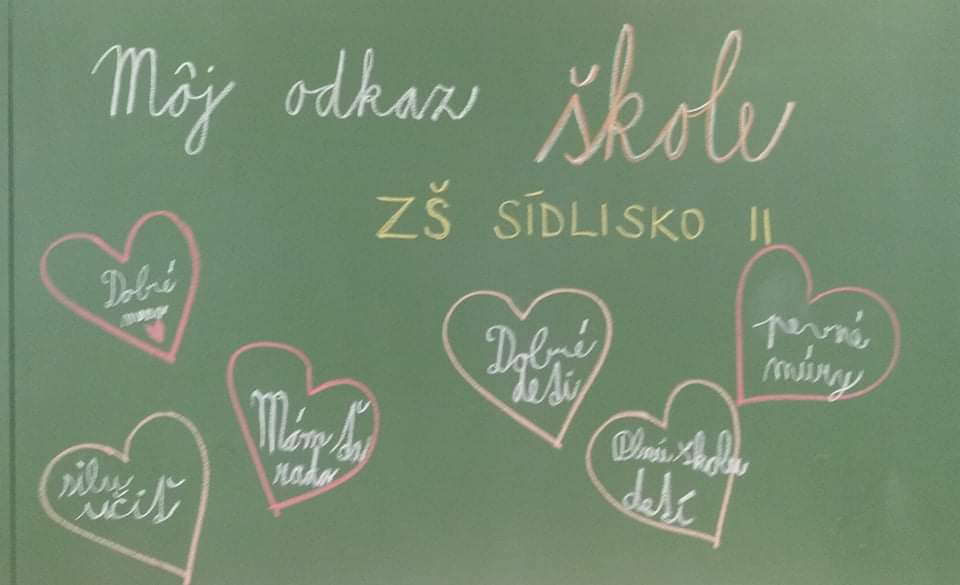 Môj odkaz škole
ZŠ SÍDLISKO II
Dobré
Mám ťa
rada
silu
učiť
Dobré
deti
Plnú školu
detí
pevné
múry